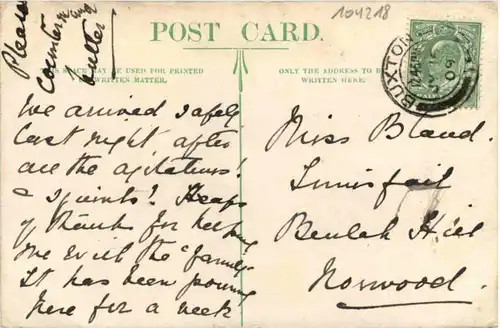 104218
Please
countermand
butter
POST CARD.
SPACE MAY BE USED FOR PRINTED
WRITTEN MATTER.
ONLY THE ADDRESS TO B
WRITTEN HERE.
BUXTON
09
We arrived safely
last night after
all the agitations!
& spirits! Heaps
of thanks for helping
me with the "family"
It has been pouring
here for a week
Miss Bland.
Innisfail
Beulah Hill
Norwood.